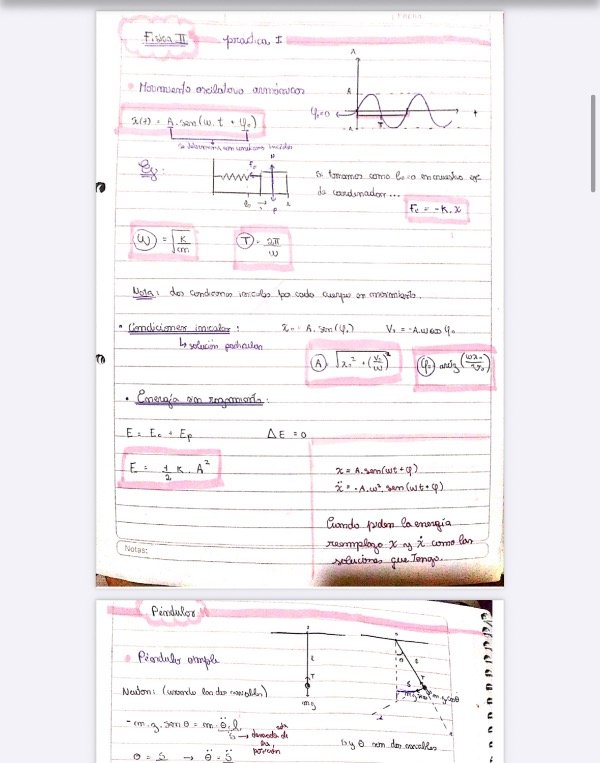 Física II
práctica I
• Movimiento oscilatorio armónicos
x(t) = A. sen(w. t + φ₀)
Se determina con condiciones iniciales
A
A
φ₀=0
-A
T
t
Ej:
Fe
N
l₀
P
Si tomamos como l₀=0 en nuestro eje
de coordenadas...
Fe = -K. x
W = √K/m
T = 2π/W
Nota: dos condiciones iniciales por cada cuerpo en movimiento.
• Condiciones iniciales:
x₀ = A. sen(φ₀)
V₀ = -A.w cos φ₀
↳ solución particular
A = √x₀² + (V₀/W)²
φ₀ = arctg (wx₀/V₀)
• Energía sin rozamiento:
E = Ec + Ep
ΔE = 0
E = 1/2 K. A²
x = A.sen(wt+φ)
ẍ = -A.w².sen(wt+φ)
Cuando piden la energía
reemplazo x y ẋ como las
soluciones que Tengo.
Notas:
Péndulos
• Péndulo simple
Newton: (usando las dos variables)
T
mg
l
θ
T
S
mg cosθ
-m.g.senθ = m.θ̈.l
S̈ → derivada de
la
posición
S y θ son dos variables
θ = S → θ̈ = S̈